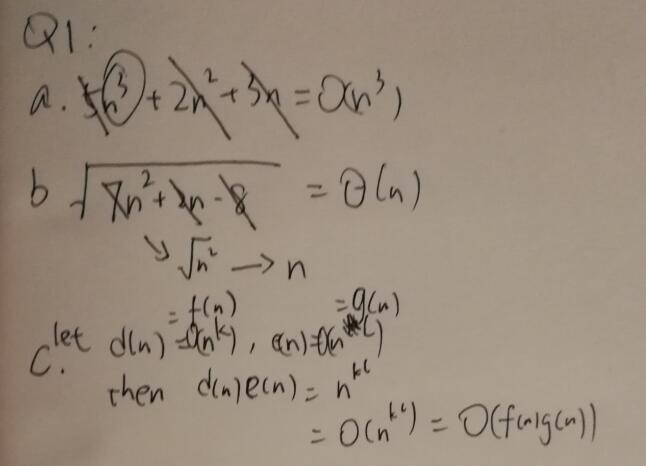 Q1:
a. 5n³ + 2n² + 3n = O(n³)
b √(7n² + 2n - 8) = Θ(n)
↘ √n² → n
= f(n) = g(n)
c. let d(n) = O(n^k), e(n) = O(n^l)
then d(n)e(n) = n^kl
= O(n^kl) = O(f(n)g(n))